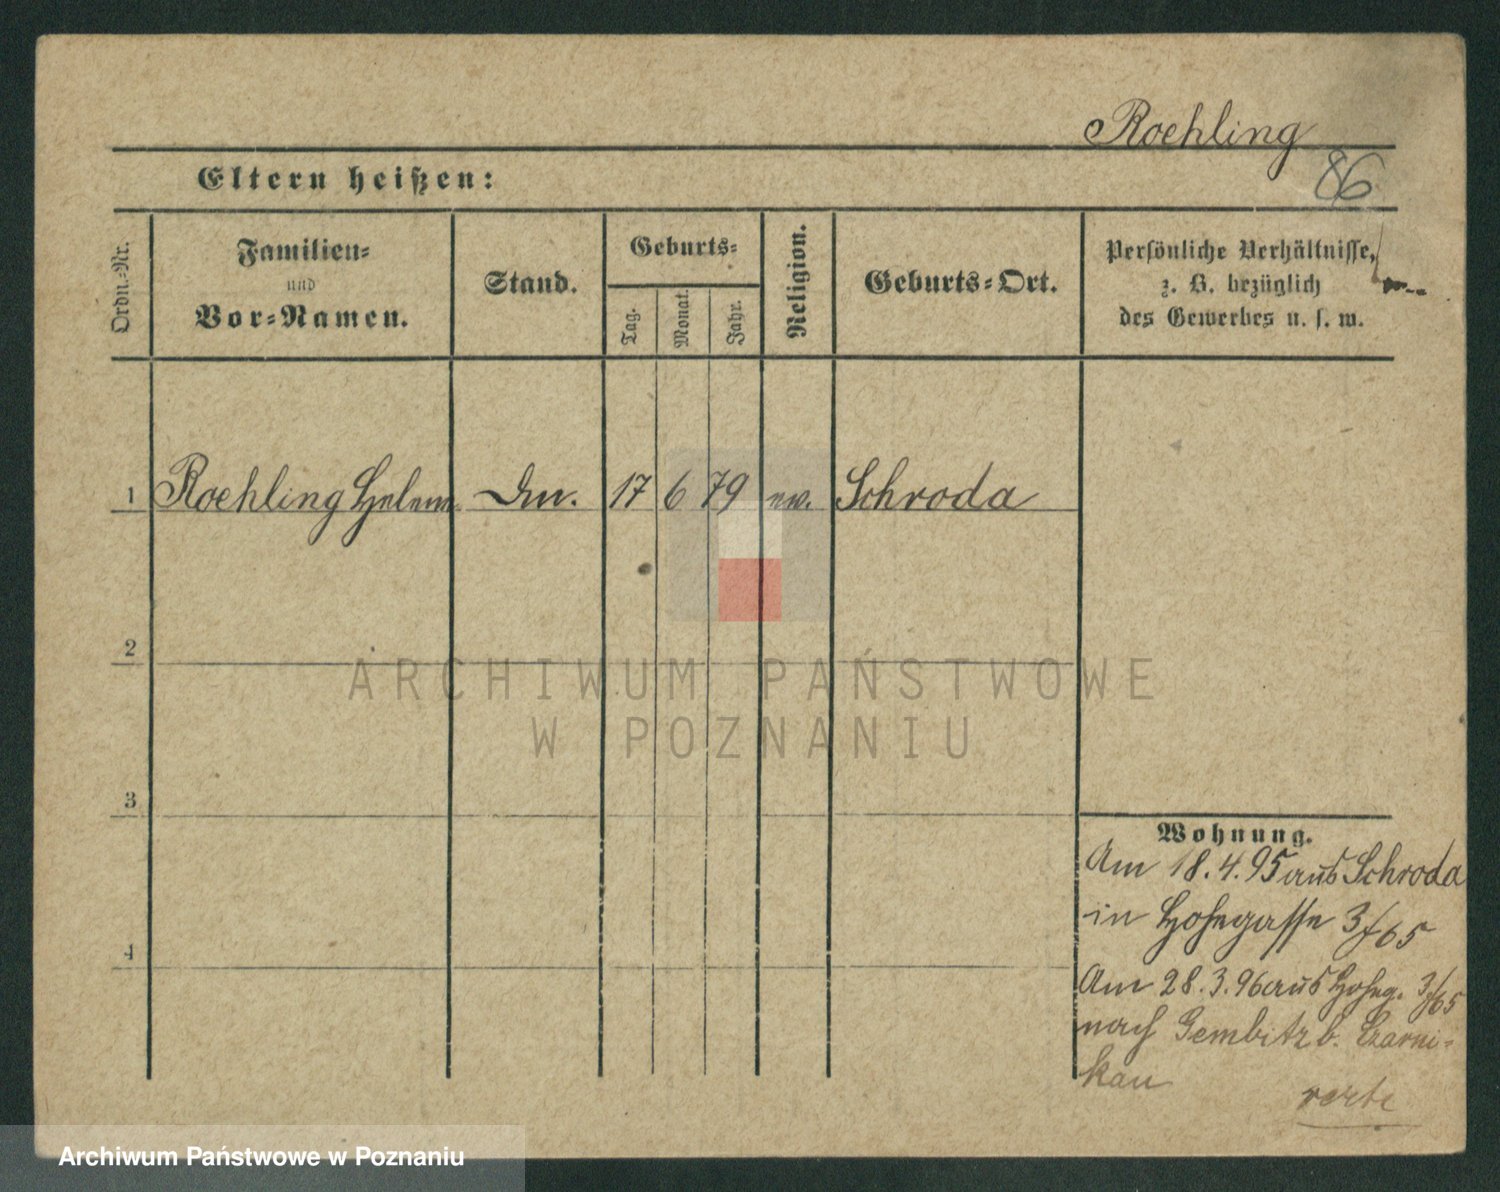 Roehling
Eltern heißen:
86
Ordn.-Nr.
Familien-
und
Vor-Namen.
Stand.
Geburts-
Tag.
Monat.
Jahr.
Religion.
Geburts-Ort.
Persönliche Verhältnisse,
z. B. bezüglich
des Gewerbes u. s. w.
1 Roehling Helene 17 6 79 ev. Schroda
2
3
4
Wohnung.
Am 18.4.95 aus Schroda
in Hohegasse 3/65
Am 28.3.96 aus Hoheg. 3/65
nach Gembitz b. Czarni-
kau
verte
ARCHIWUM PAŃSTWOWE
W POZNANIU
Archiwum Państwowe w Poznaniu